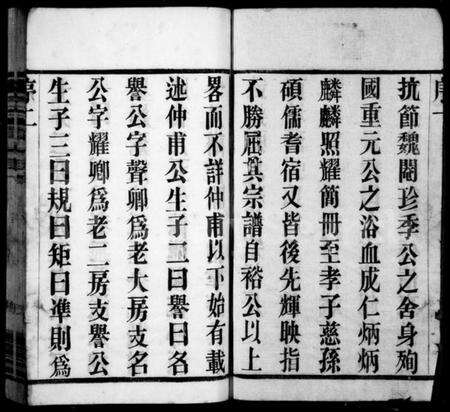 抗節魏閹珍季公之舍身殉
國重元公之浴血成仁炳炳
麟麟照耀簡冊至孝子慈孫
碩儒耆宿又皆後先輝映指
不勝屈其宗譜自裕公以上
畧而不詳仲甫以下始有載
述仲甫公生子二曰譽曰名
譽公字聲卿為老大房支名
公字耀卿為老二房支譽公
生子三曰規曰矩曰準則為
序二